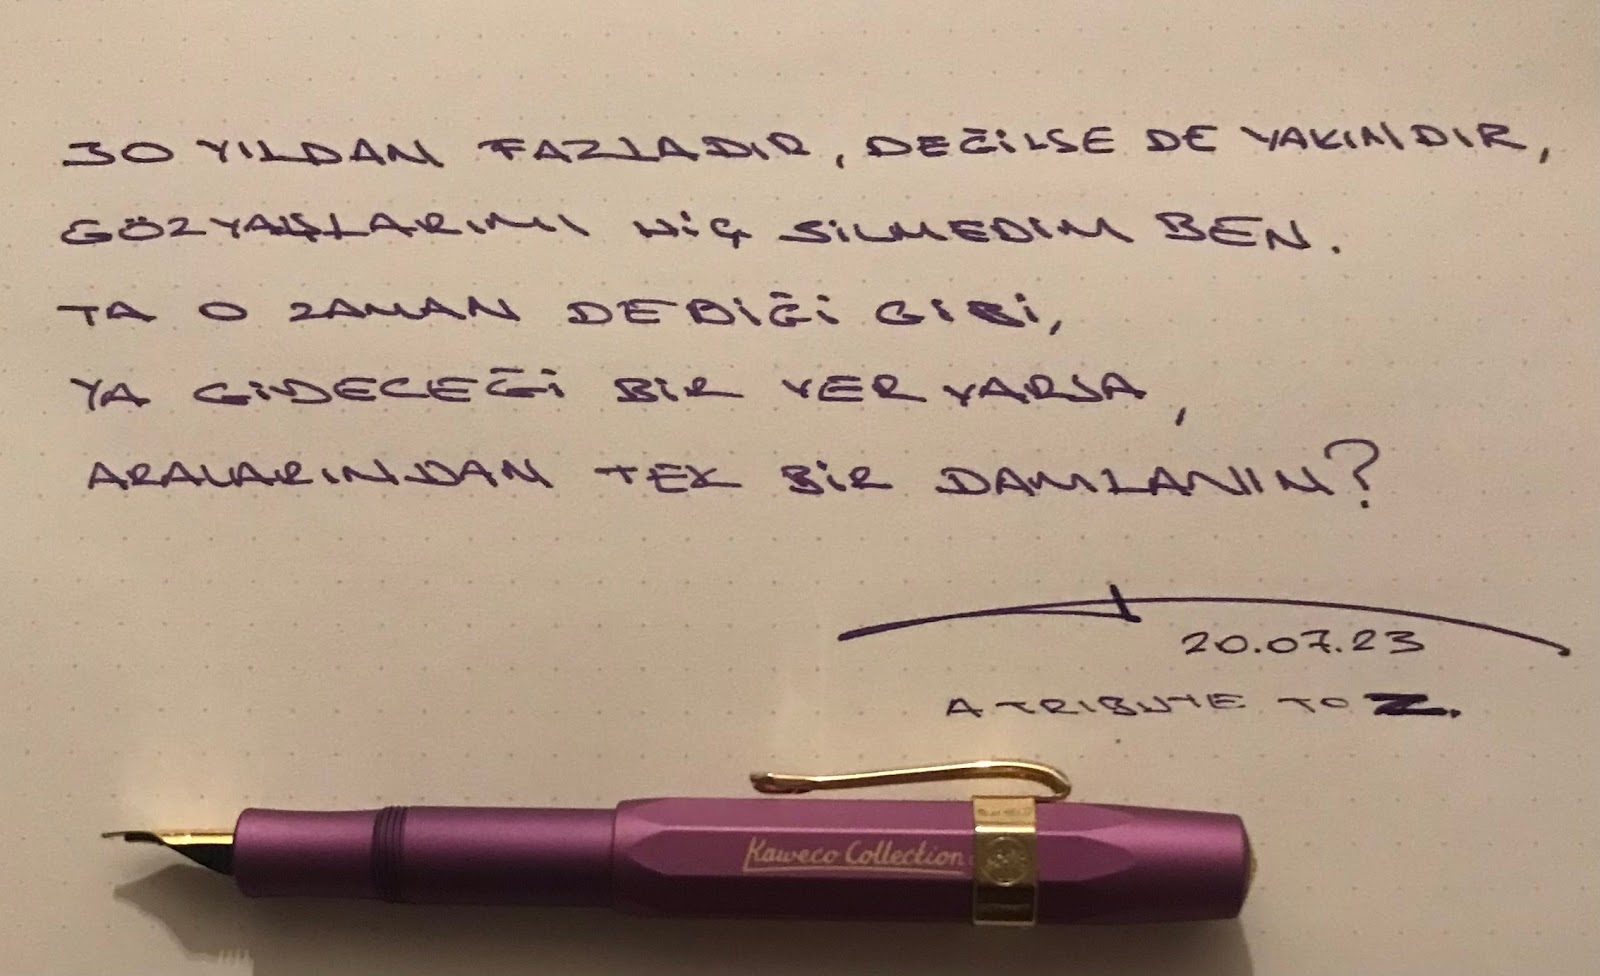 30 YILDAN FAZLADIR, DEĞİLSE DE YAKINDIR,
GÖZYAŞLARIMI HİÇ SİLMEDİM BEN.
TA O ZAMAN DEDİĞİ GİBİ,
YA GİDECEĞİ BİR YER VARSA,
ARALARINDAN TEK BİR DAMLANIN?
20.07.23
A TRIBUTE TO Z.
Kaweco Collection